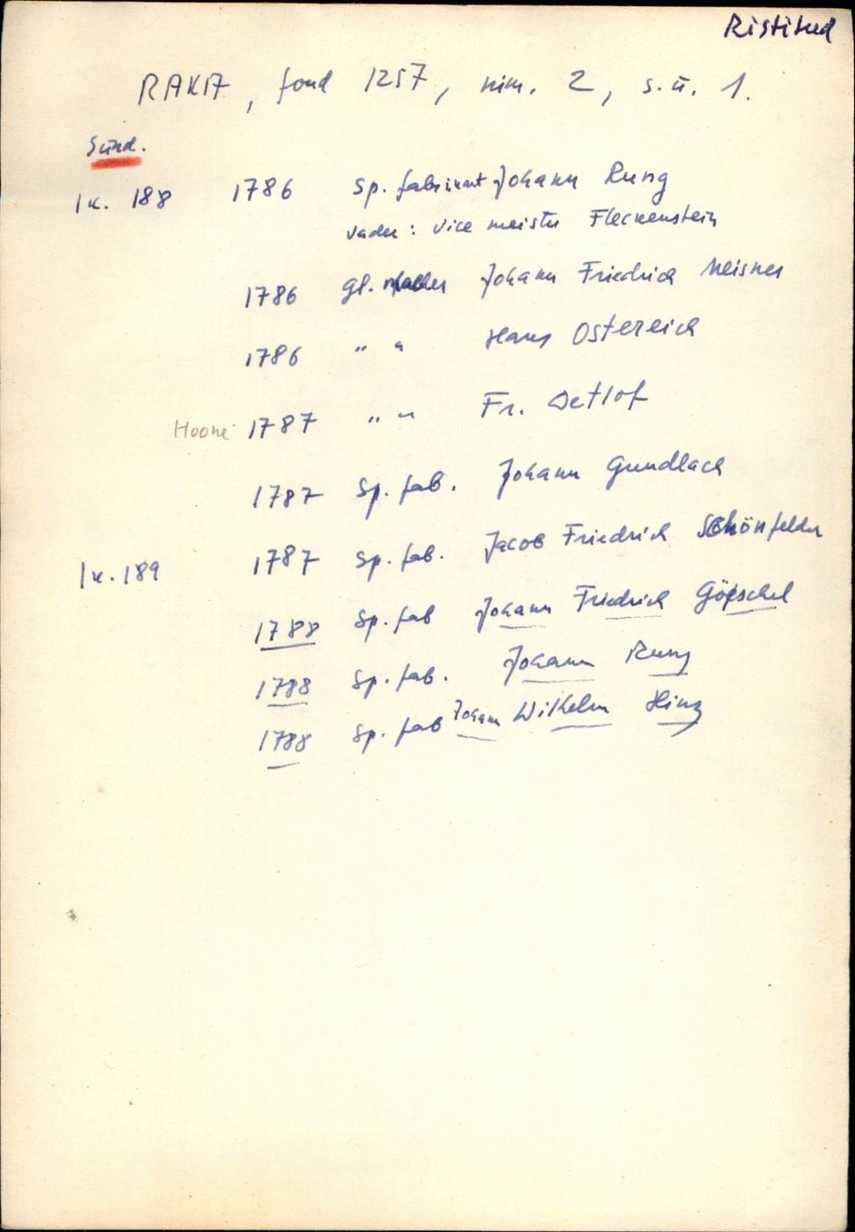 Ristitud
RAKA, fond 1257, nim. 2, s.ü. 1.
Sünd.
lk. 188 1786 Sp. fabrikant Johann Rung
vader: vice meister Fleckenstein
1786 gl. Johann Friedrich Meisner
1786 " " Hans Ostereich
Hoone 1787 " " Fr. Detlof
1787 Sp. fab. Johann Gundlach
lk. 189 1787 Sp. fab. Jacob Friedrich Schönfelder
1788 Sp. fab Johann Friedrich Göpschel
1788 Sp. fab. Johann Rung
1788 Sp. fab Johann Wilhelm Hinz